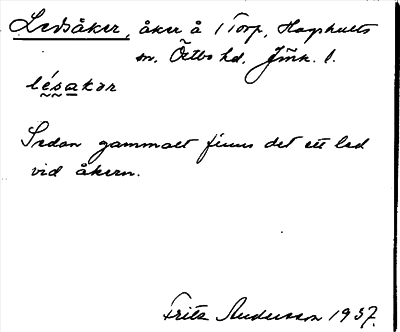 Ledsåker, åker å 1 Torp, Hagshults
sn. Östbo hd, Jmk. l.
lésakər
Sedan gammalt finns det ett led
vid åkern.
Frits Andersson 1937.